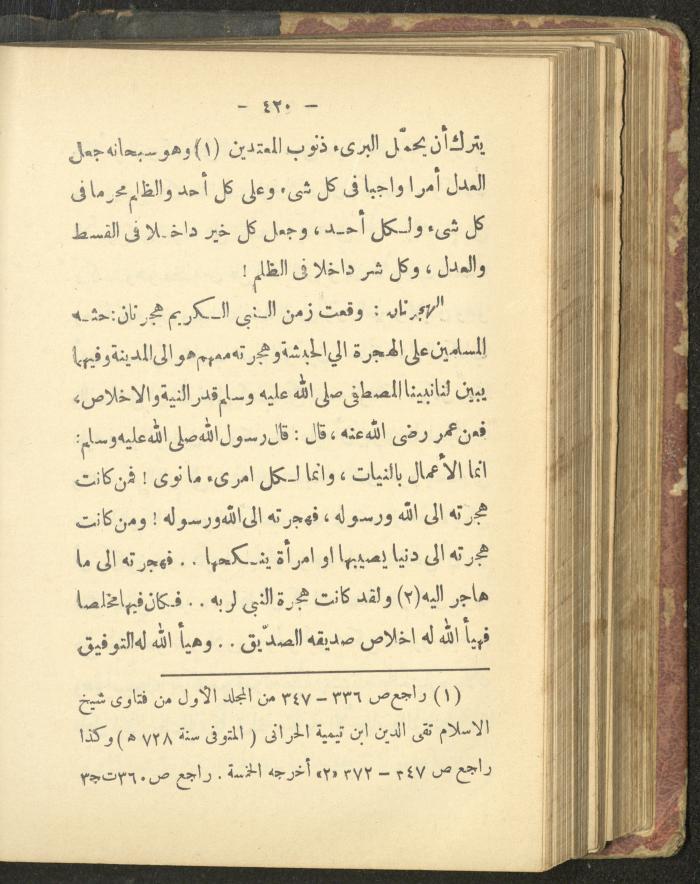 – ٤٢٠ –
يترك أن يحمّل البرىء ذنوب المعتدين (١) وهو سبحانه جعل
العدل أمرا واجبا فى كل شىء وعلى كل أحد والظلم محرما فى
كل شىء ولكل أحد ، وجعل كل خير داخلا فى القسط
والعدل ، وكل شر داخلا فى الظلم !
الهجرتان : وقعت زمن النبى الكريم هجرتان : حثه
المسلمين على الهجرة الي الحبشة وهجرته معهم هو الى المدينة وفيها
يبين لنا نبينا المصطفى صلى الله عليه وسلم قدر النية والاخلاص ،
فعن عمر رضى الله عنه ، قال : قال رسول الله صلى الله عليه وسلم :
انما الأعمال بالنيات ، وانما لكل امرىء ما نوى ! فمن كانت
هجرته الى الله ورسوله ، فهجرته الى الله ورسوله ! ومن كانت
هجرته الى دنيا يصيبها او امرأة ينكحها . . فهجرته الى ما
هاجر اليه (٢) ولقد كانت هجرة النبي لربه . . فكان فيها مخلصا
فهيأ الله له اخلاص صديقه الصدّيق . . وهيأ الله له التوفيق
(١) راجع ص ٣٣٦ – ٣٤٧ من المجلد الأول من فتاوى شيخ
الاسلام تقى الدين ابن تيمية الحرانى ( المتوفى سنة ٧٢٨ ه ) وكذا
راجع ص ٣٤٧ – ٣٧٢ «٢» أخرجه الخمسة . راجع ص ٣٦٠ ت ج ٣